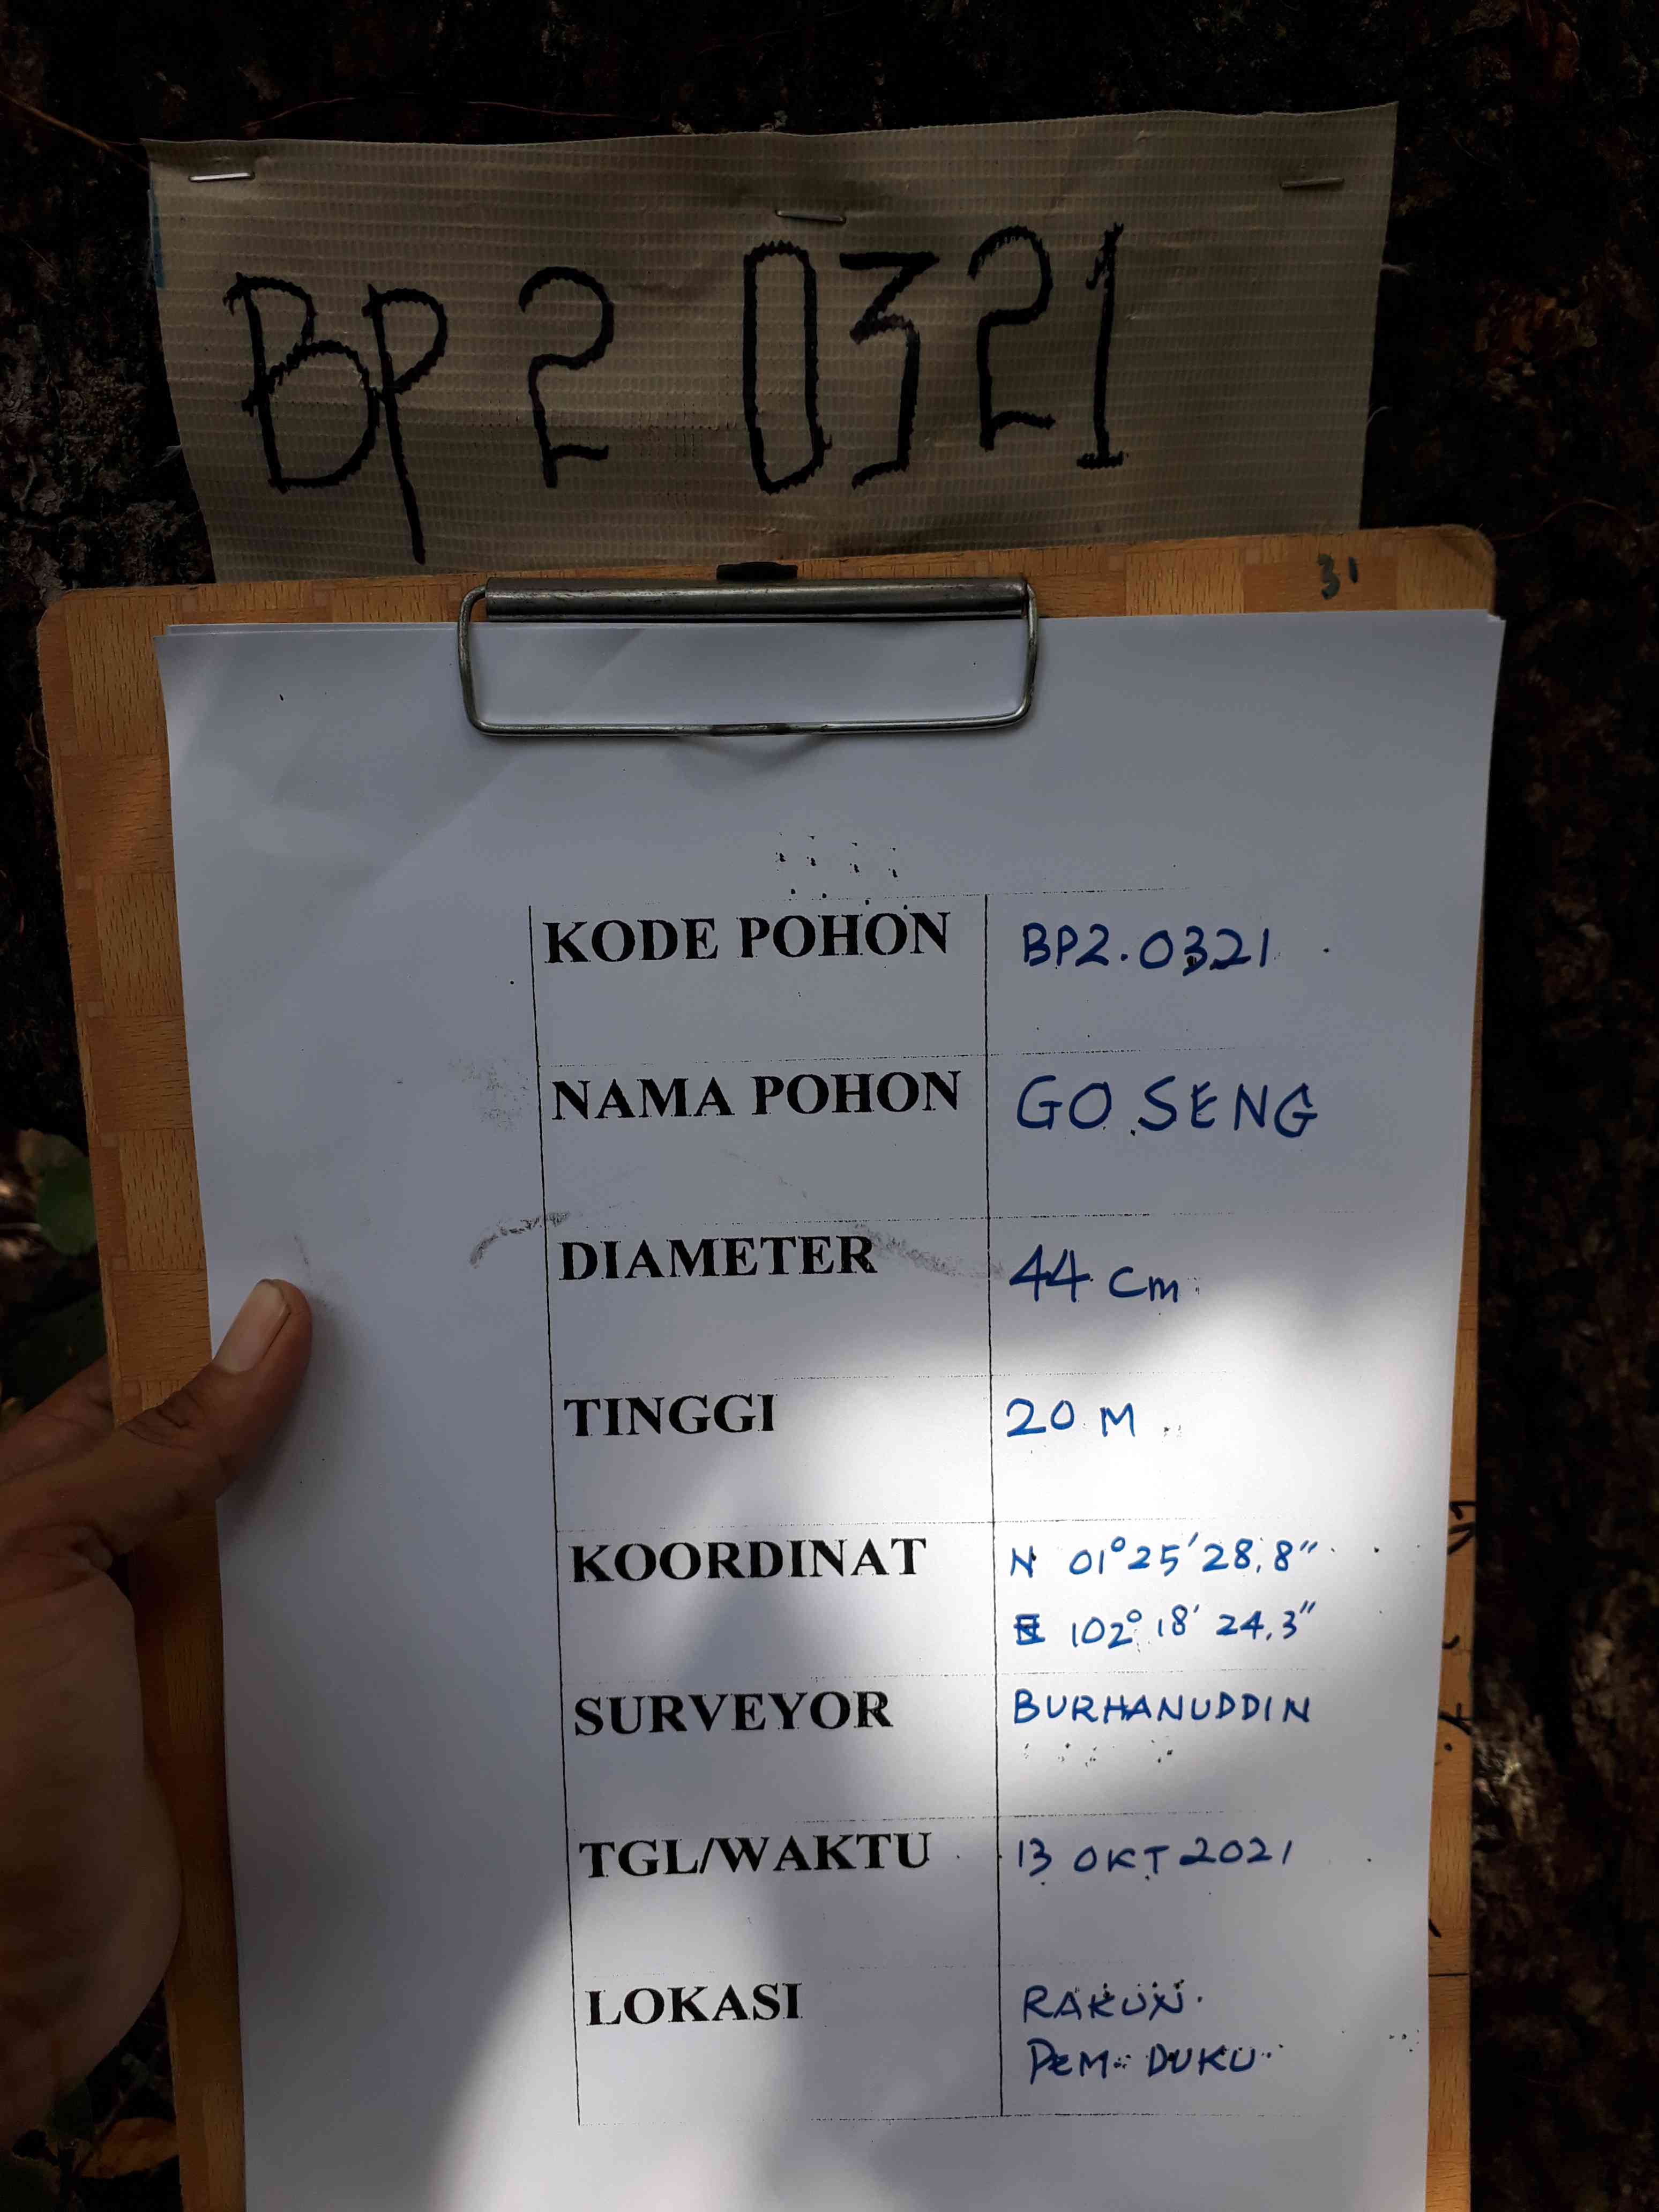 BP 2 0321
31
KODE POHON BP2.0321
NAMA POHON GO SENG
DIAMETER 44 Cm
TINGGI 20 M
KOORDINAT N 01°25'28,8"
E 102° 18' 24,3"
SURVEYOR BURHANUDDIN
TGL/WAKTU 13 OKT 2021
LOKASI
PEM DUKU